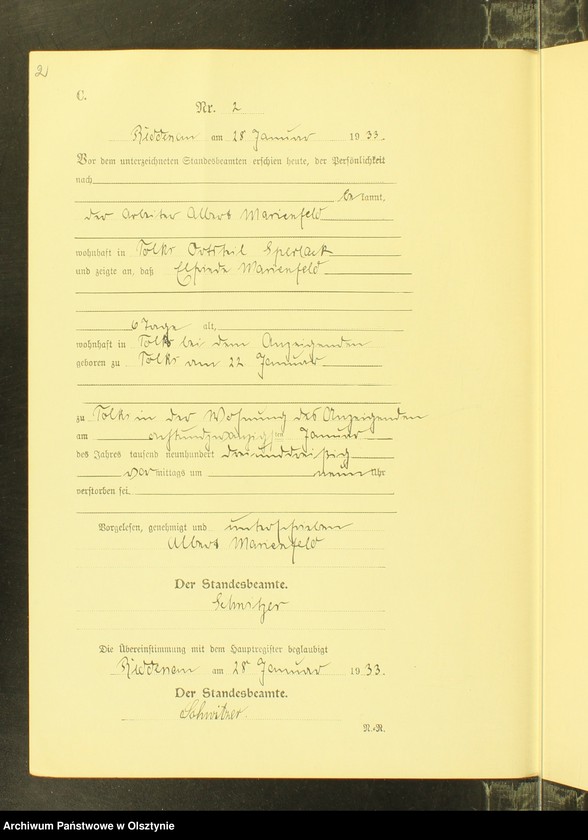 2
C.
Nr. 2
am 28 Januar 1933.
Vor dem unterzeichneten Standesbeamten erschien heute, der Persönlichkeit
nach
be kannt,
der Arbeiter Albert Marienfeld
wohnhaft in Tolks Ortsteil Sperlack
und zeigte an, daß Elfriede Marienfeld
6 Tage alt,
wohnhaft in Tolks bei dem Anzeigenden
geboren zu Tolks am 22 Januar
zu Tolks in der Wohnung des Anzeigenden
am achtundzwanzigsten Januar
des Jahres tausend neunhundert dreiunddreißig
vor mittags um neun Uhr
verstorben sei.
Vorgelesen, genehmigt und unterschrieben
Albert Marienfeld
Der Standesbeamte.
Die Übereinstimmung mit dem Hauptregister beglaubigt
am 28 Januar 1933.
Der Standesbeamte.
N.-R.
Archiwum Państwowe w Olsztynie